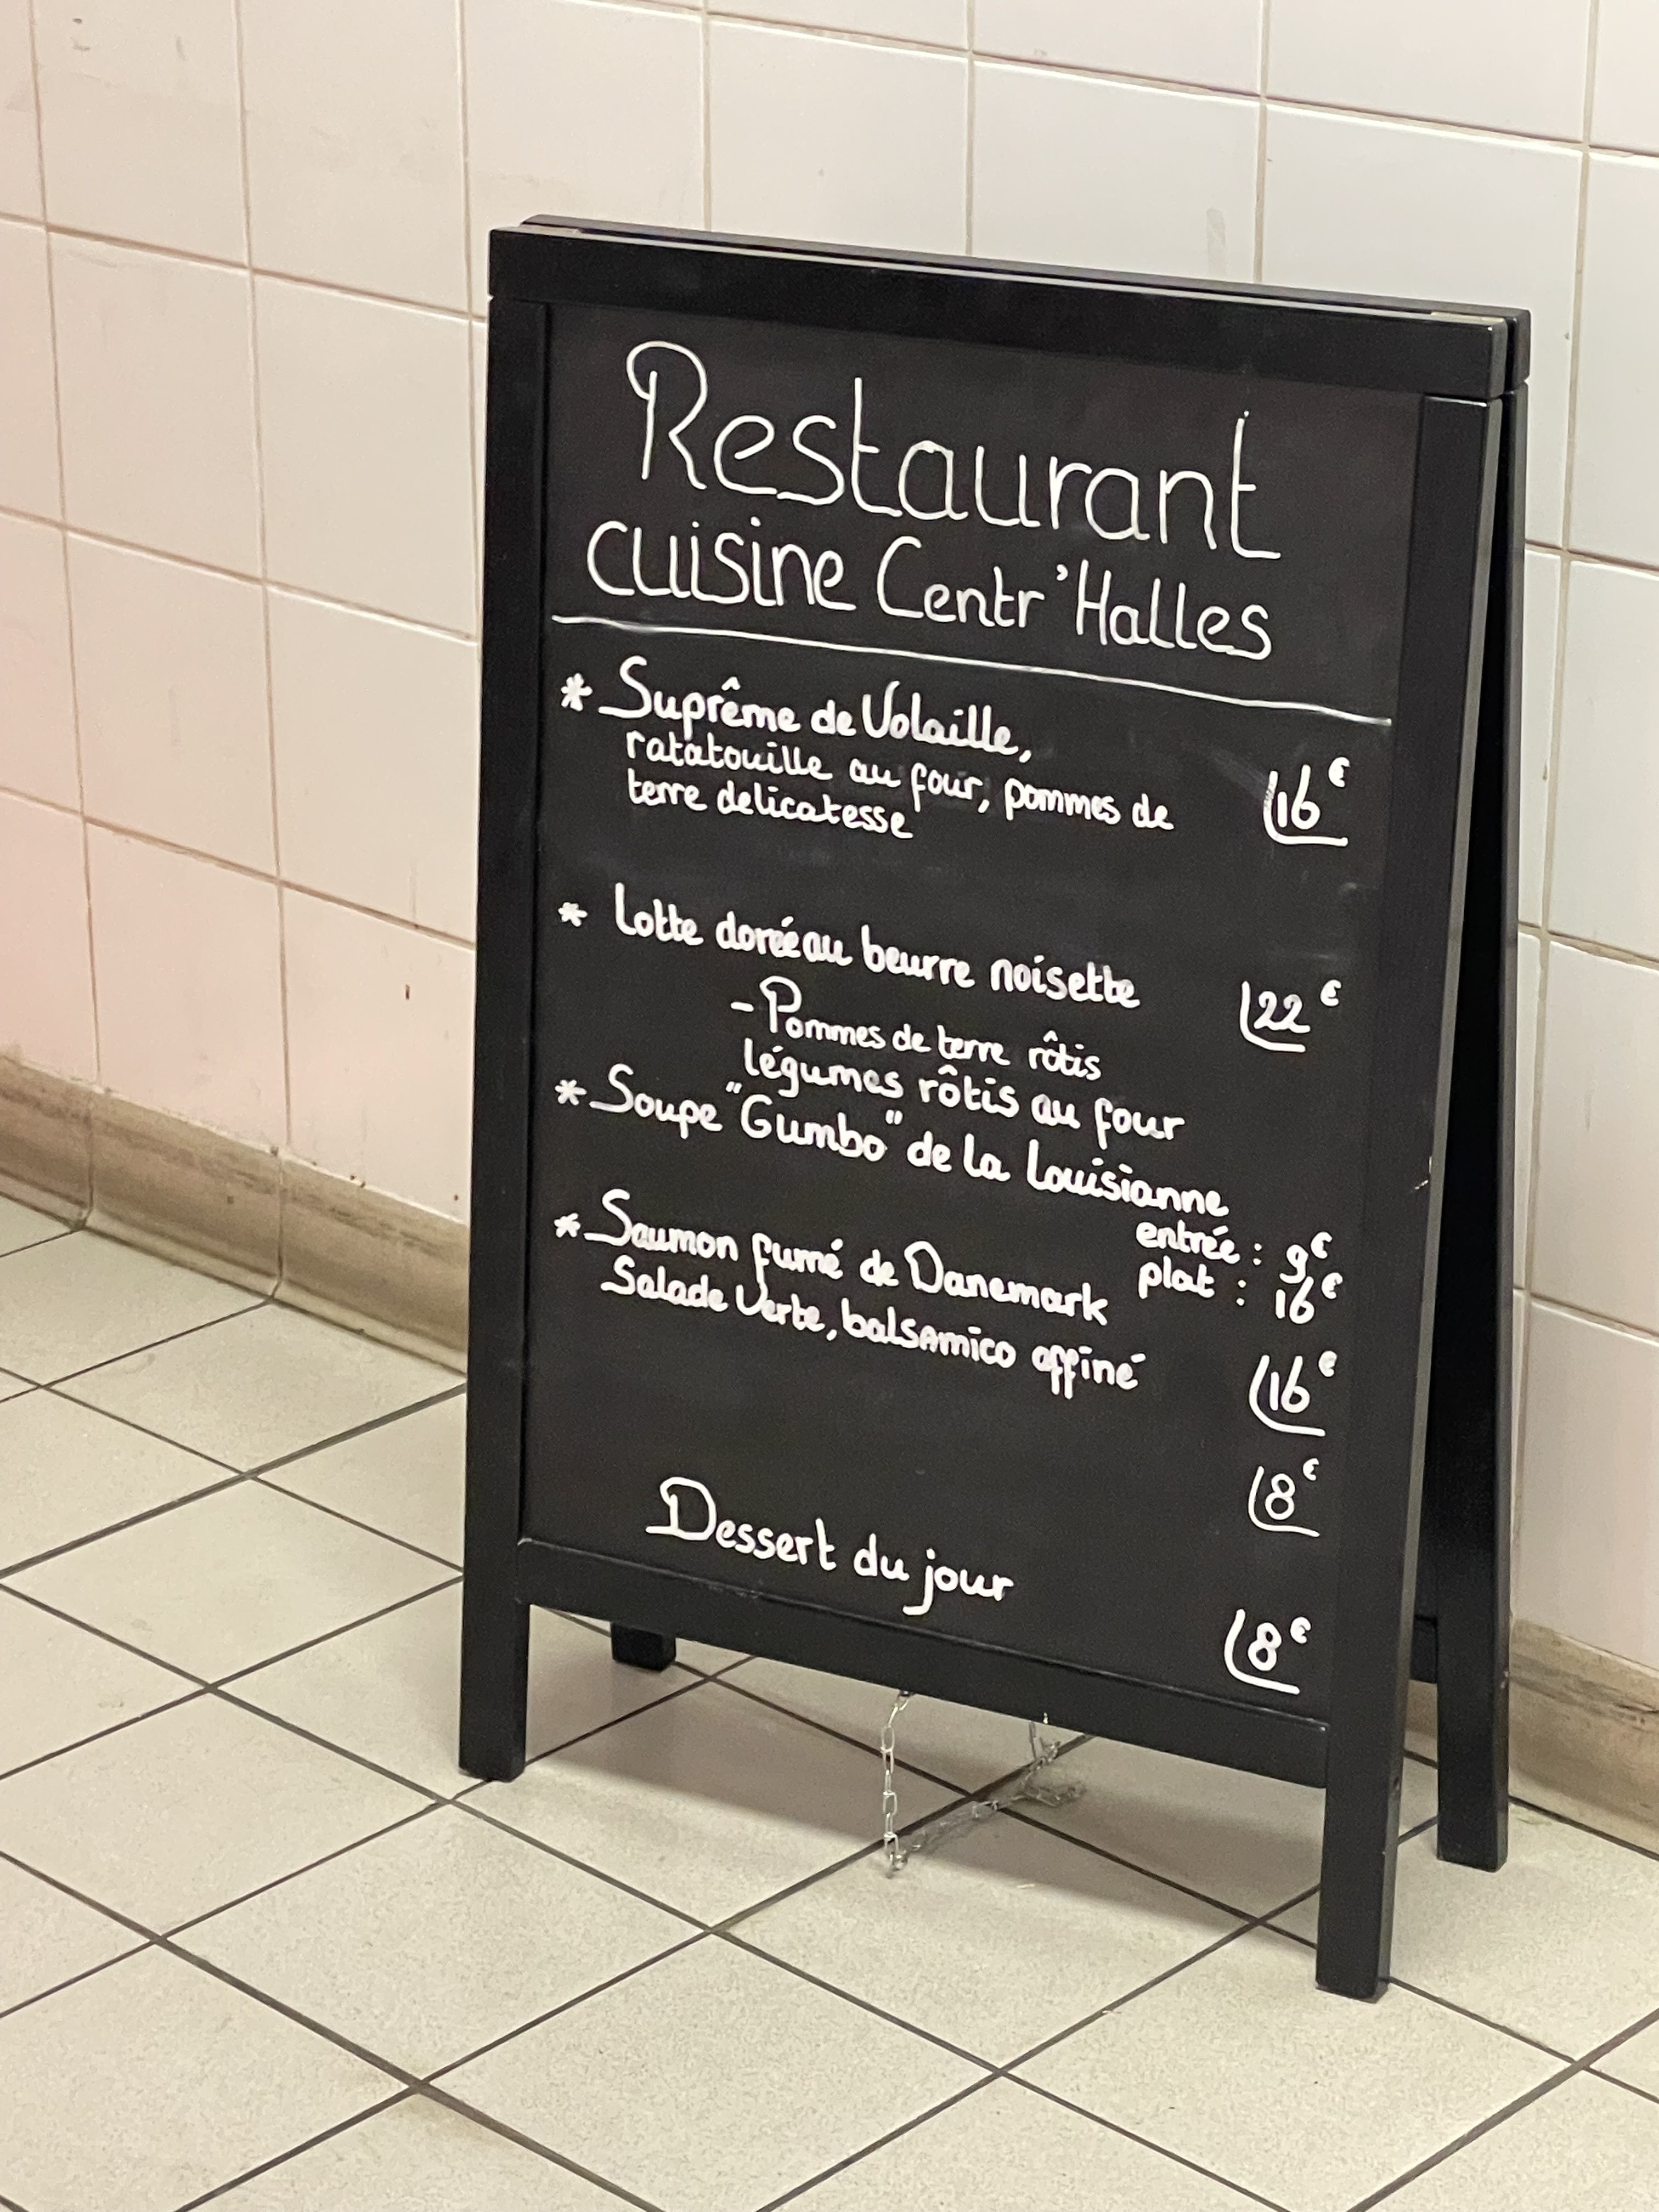 Restaurant
cuisine Centr'Halles
* Suprême de Volaille,
ratatouille au four, pommes de
terre delicatesse
16€
* Lotte dorée au beurre noisette
22€
- Pommes de terre rôtis
légumes rôtis au four
* Soupe "Gumbo" de la Louisianne
entrée : 9€
plat : 16€
* Saumon fumé de Danemark
Salade Verte, balsamico affiné
16€
8€
Dessert du jour
8€